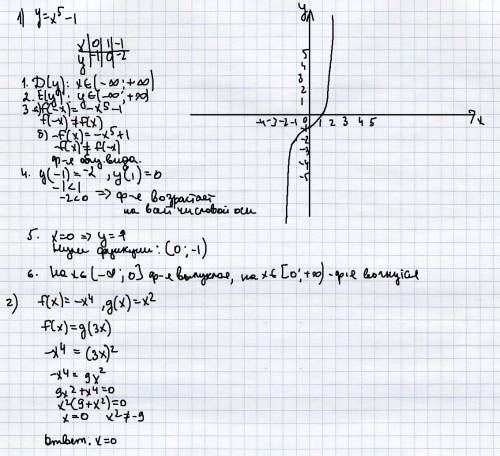 1) y=x⁵-1
x | 0 | 1 | -1
y | -1 | 0 | -2
1. D(y): x∈(-∞;+∞)
2. E(y): y∈(-∞;+∞)
3. а) f(-x)=-x⁵-1
f(-x)≠f(x)
б) -f(x)=-x⁵+1
-f(x)≠f(-x)
ф-я общ. вида.
4. y(-1)=-2, y(1)=0
-1<1
-2<0 => ф-я возрастает
на всей числовой оси
5. x=0 => y=-1
Нули функции: (0;-1)
6. На x∈(-∞;0] ф-я выпуклая, на x∈[0;+∞) - ф-я вогнутая
y
5
4
3
2
1
-4 -3 -2 -1 1 2 3 4 5 x
-1
-2
-3
-4
-5
2) f(x)=-x⁴, g(x)=x²
f(x)=g(3x)
-x⁴=(3x)²
-x⁴=9x²
9x²+x⁴=0
x²(9+x²)=0
x=0 x²≠-9
Ответ. x=0